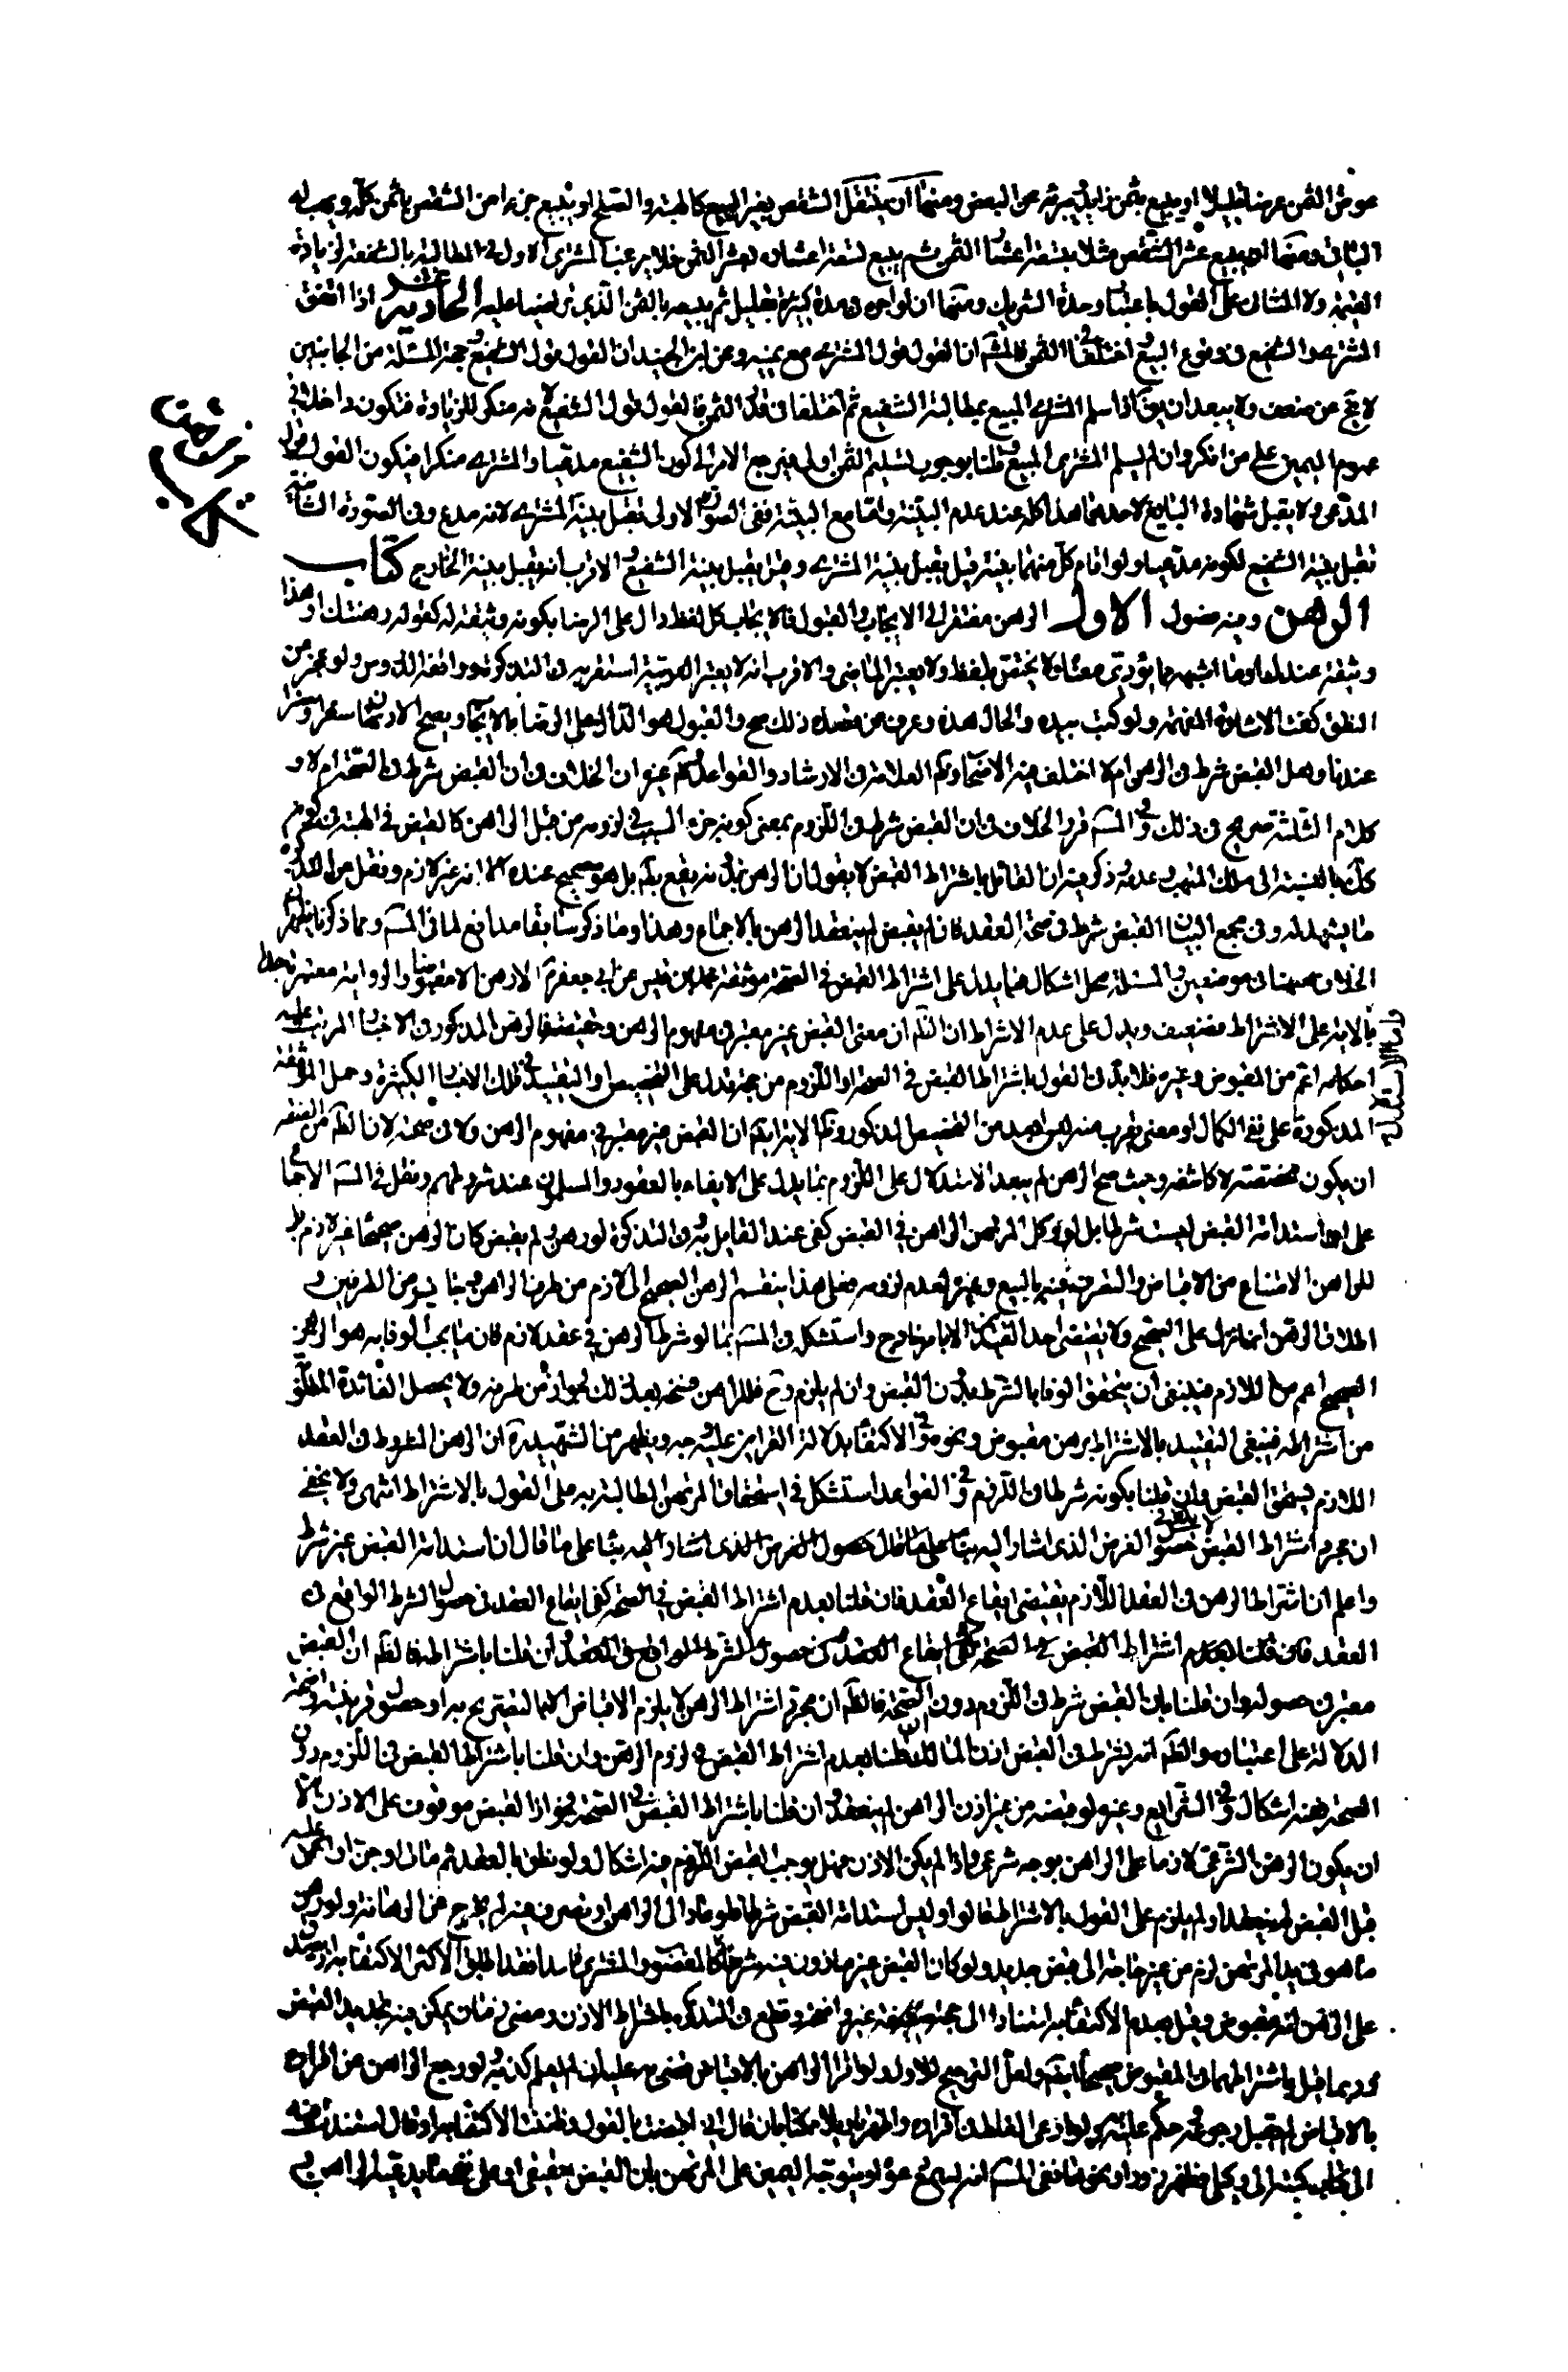 عوض الثمن عرضا قليلا او يبيع بثمن زايد يبرئه عن البعض ومنها ان ينتقل الشقص بغير البيع كالهبة والصلح او يبيع جزءا من الشقص بالثمن كله ويهب له
الباقي ومنها ان يبيع عشر الشقص مثلا بتسعة اعشار الثمن ثم يبيع تسعة اعشاره بعشر الثمن فلا يرغب المشتري الاول في المطالبة بالشفعة لزيادة
القيمة ولا الشفيع على القول باعتبار وحدة الشريك ومنها ان يواجره مدة كثيرة بقليل ثم يبيعه بالثمن الذي تراضيا عليه الحادية عشر اذا اتفق
المشتري والشفيع في وقوع البيع واختلفا في الثمن فالمشهور ان القول قول المشتري مع يمينه وعن ابن الجنيد ان القول قول الشفيع وحجة المسئلة من الجانبين
لا يخ عن ضعف ولا يبعد ان يق اذا سلم المشتري المبيع بمطالبة الشفيع ثم اختلفا في قدر الثمن فالقول قول الشفيع لانه منكر للزيادة فتكون داخلا في
عموم اليمين على من انكر وان لم يسلم المشتري المبيع وقلنا بوجوب تسليم الثمن اولا فيرجع الامر الى كون الشفيع مدعيا والمشتري منكرا فيكون القول قول
المدعى ولا يقبل شهادة البايع لاحدهما هذا كله عند عدم البينة واما مع البينة ففي الصورة الاولى تقبل بينة المشتري لانه مدع وفي الصورة الثانية
تقبل بينة الشفيع لكونه مدعيا ولو اقام كل منهما بينة قيل يقبل بينة المشتري وقيل يقبل بينة الشفيع والاقرب انه يقبل بينة الخارج كتاب
الرهن وفيه فصول الاول الرهن مفتقر الى الايجاب والقبول فالايجاب كل لفظ دال على الرضا بكونه وثيقة له كقوله رهنتك او هذا
وثيقة عندك او ما اشبهها يؤدي معناه ولا يختص بلفظ ولا يعتبر الماضي والاقرب انه لا يعتبر العربية استقربه في التذكرة ووافقه الدروس ولو عجز عن
النطق كفت الاشارة المفهمة ولو كتب بيده والحال هذه وعرف من قصده ذلك صح والقبول هو الدال على الرضا بالايجاب ويصح الارتهان سفرا وحضرا
عندنا وهل القبض شرط في الرهن ام لا اختلف فيه الاصحاب وكلام العلامة في الارشاد والقواعد وغيره ان الخلاف في ان القبض شرط في الصحة ام لا و
كلام الثلثة صريح في ذلك وفي المسالك فرد الخلاف في ان القبض شرط في اللزوم بمعنى كونه جزء السبب في لزومه من قبل الراهن كالقبض في الهبة في كونه
كذلك بالنسبة الى ملك المتهب وعدمه ذكر فيه ان القائل باشتراط القبض لا يقول ان الرهن بدونه يقع باطلا بل هو صحيح عنده الا انه غير لازم ونقل من التذكرة
ما يشهد له وفي مجمع البيان القبض شرط في صحة العقد فان لم يقبض لم ينعقد الرهن بالاجماع وهذا وما ذكر سابقا مدافع لما في المسالك ومما ذكرنا يظهر
الخلاف هيهنا في موضعين والمسئلة محل اشكال فما يدل على اشتراط القبض في الصحة موثقة محمد بن قيس عن ابي جعفر لا رهن الا مقبوضا والرواية معتبرة جدا
والاستدلال
بالاية على الاشتراط ضعيف ويدل على عدم الاشتراط ان الظاهر ان معنى القبض غير معتبر في مفهوم الرهن وحقيقته فالرهن المذكور في الاخبار المرتب عليه
احكامه اعم من المقبوض وغيره فلا بد في القول باشتراط القبض في الصحة او اللزوم من حجة تدل على التخصيص او التقييد في تلك الاخبار الكثيرة وحمل الموثقة
المذكورة على نفي الكمال او معنى يقرب منه ليس ابعد من التخصيص المذكور وظاهر الاية ايضا ان القبض غير معتبر في مفهوم الرهن ولا في صحته لان الظاهر من الصفة
ان يكون مخصصة لا كاشفة وحيث صح الرهن لم يبعد الاستدلال على اللزوم بما يدل على الايفاء بالعقود والمسلمون عند شروطهم ونقل في المسالك الاجماع
على ان استدامة القبض ليست شرطا بل لو وكل المرتهن الراهن في القبض كفى عند القايل به وفي التذكرة لو رهن ولم يقبض كان الرهن صحيحا غير لازم بل
للراهن الامتناع من الاقباض والتصرف فيه بالبيع وغيره لعدم لزومه فعلى هذا ينقسم الرهن الصحيح الى لازم من طرف الراهن وجايز من الطرفين و
اطلاق الرهن انما ينزل على الصحيح ولا يقتضي احد القيدين الا بامر خارج واستشكل في المسالك بما لو شرط الرهن في عقد لازم فان ما يجب الوفا به هو الرهن
الصحيح اعم من اللازم فينبغي ان يتحقق الوفا بالشرط بدون القبض وان لم يلزم وح فللراهن فسخه بعد ذلك لجوازه من طرفه ولا يحصل الفائدة المطلوبة
من اشتراطه فينبغي التقييد بالاشتراط برهن مقبوض ونحوه او الاكتفاء بدلالة القراين عليه وجه ويظهر من الشهيد ره ان الرهن المشروط في العقد
اللازم يستحق القبض وان قلنا بكونه شرطا في اللزوم وفي القواعد استشكل في استحقاق المرتهن المطالبة به على القول بالاشتراط انتهى ولا يخفى
ان مجرد اشتراط القبض لا يكفي في حصول الغرض الذي اشار اليه بناء على ما قال ان استدامة القبض غير شرط
واعلم ان اشتراط الرهن في العقد اللازم يقتضي ايقاع العقد فان قلنا بعدم اشتراط القبض في الصحة كفى ايقاع العقد في حصول الشرط الواقع في
العقد فان قلنا بعدم اشتراط القبض في الصحة كفى ايقاع العقد في حصول الشرط الواقع في العقد وان قلنا باشتراطه فالظاهر ان القبض
معتبر في حصوله وان قلنا بان القبض شرط في اللزوم دون الصحة فالظاهر ان مجرد اشتراط الرهن لا يلزم الاقباض الا بالتصريح به او حصول قرينة واضحة
الدلالة على اعتباره والظاهر انه يشترط في القبض اذن الراهن ان قلنا بعدم اشتراط القبض في لزوم الرهن وان قلنا باشتراط القبض في اللزوم دون
الصحة ففيه اشكال وفي الشرايع وغيره لو قبضه من غير اذن الراهن لم ينعقد وان قلنا باشتراط القبض في الصحة فجواز القبض موقوف على الاذن الا
ان يكون الرهن الشرعي لازما على الراهن بوجه شرعي واذا لم يكن الاذن فهل يوجب القبض اللزوم فيه اشكال ولو نطق بالعقد ثم مات او جن او اغمي عليه
قبل القبض لم ينعقد او لم يلزم على القول بالاشتراط قالوا وليس استدامة القبض شرطا فلو عاد الى الراهن او تصرف فيه لم يخرج عن الرهانة ولو رهن
ما هو في يد المرتهن لزم من غير حاجة الى قبض جديد ولو كان القبض غير ماذون فيه شرعا كالمغصوب والمشترى فاسدا فقد اطلق الاكثر الاكتفاء به لصدق
على الرهن انه مقبوض وقيل بعدم الاكتفاء به استنادا الى حجة ضعيفة غير واضحة وقطع في التذكرة باشتراط الاذن ومضي زمان يمكن فيه تجديد القبض
وربما قيل باشتراطهما في المقبوض صحيحا ايضا ولعل الترجيح للاول ولو اقر الراهن بالاقباض قضي به عليه ان لم يعلم كذبه ولو رجع الراهن عن اقراره
بالاقباض لم يقبل رجوعه وحكم عليه به ولو ادعى الغلط في اقراره واظهر تاويلا ممكنا بان قال اني اقبضت بالقول وظننت الاكتفاء به او قال استندت فيه
الى كتاب كتبه الي وكيلي فظهر مزورا ونحوهما ففي المسالك انه يسمع دعواه ويتوجه اليمين على المرتهن بان القبض حقيقي او على نفي ما يدعيه الراهن
كتاب الرهن